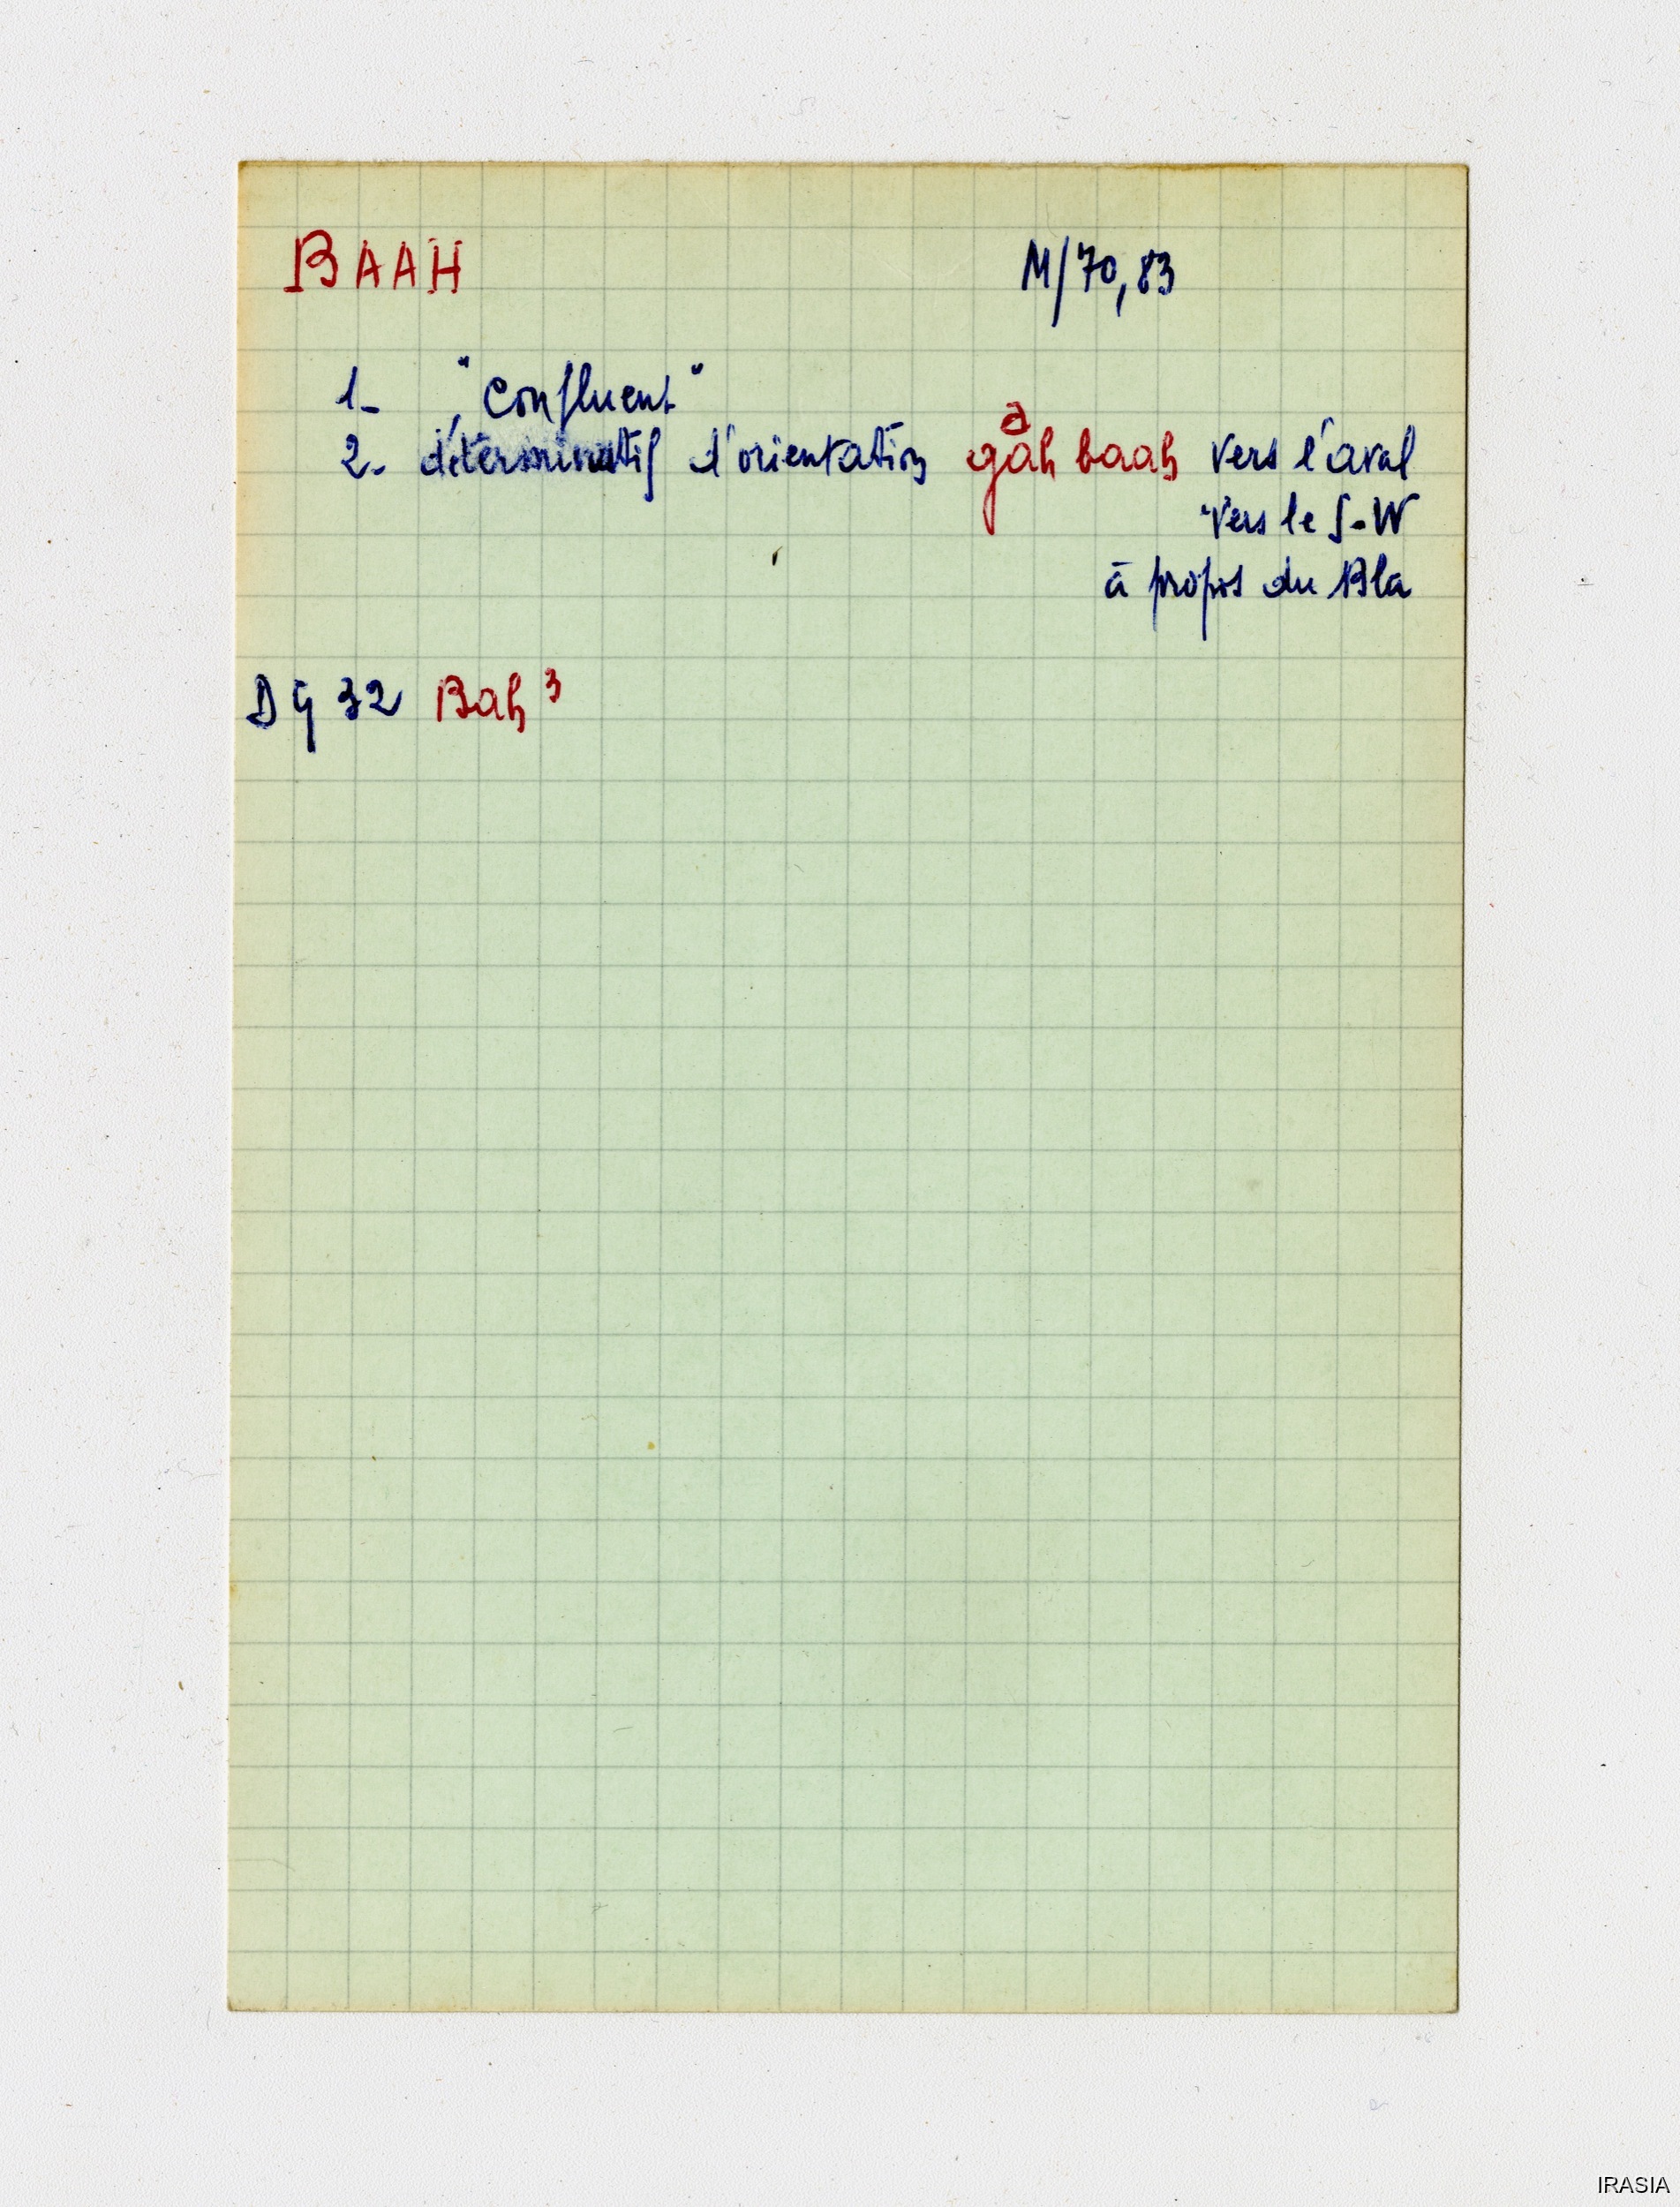 BAAH M/70,83
1- "Confluent"
2- déterminatif d'orientation gǎh baah vers l'aval
vers le S-W
à propos du Bla
DG 32 Bah³
IRASIA